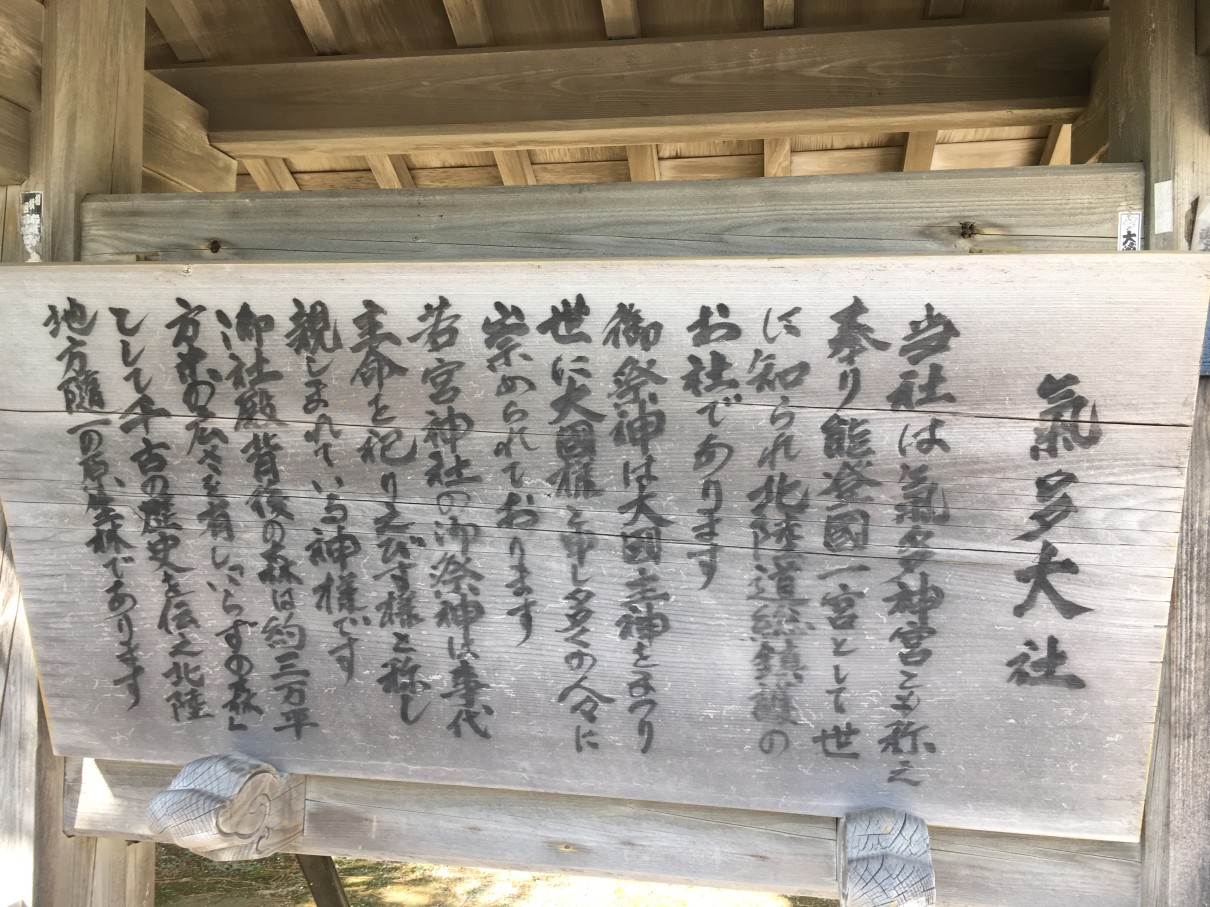 氣多大社
当社は氣多神宮とも称え
奉り能登國一宮として世
に知られ北陸道総鎮護の
お社であります
御祭神は大國主神をまつり
世に大國様と申し多くの人々に
崇められております
若宮神社の御祭神は事代
主命を祀りえびす様と称し
親しまれている神様です
御社殿背後の森は約三万平
方米の広さを有し「いらずの森」
として千古の歴史を伝え北陸
地方随一の原生林であります